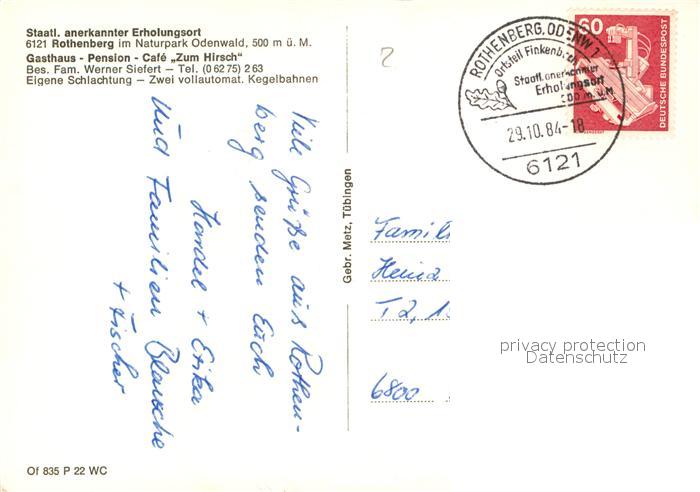 Staatl. anerkannter Erholungsort
6121 Rothenberg im Naturpark Odenwald, 500 m ü. M.
Gasthaus - Pension - Café „Zum Hirsch“
Bes. Fam. Werner Siefert — Tel. (0 62 75) 2 63
Eigene Schlachtung — Zwei vollautomat. Kegelbahnen
Viele Grüße aus Rothen-
berg senden Euch
+ Erika
und Familien
+ Fischer
Gebr. Metz, Tübingen
ROTHENBERG, ODENW 1
Ortsteil
Staatl. anerkannter
Erholungsort
500 m. ü. M.
29.10.84-18
6121
60
DEUTSCHE BUNDESPOST
Famili
Heinz
T2, 1
6800
privacy protection
Datenschutz
Of 835 P 22 WC